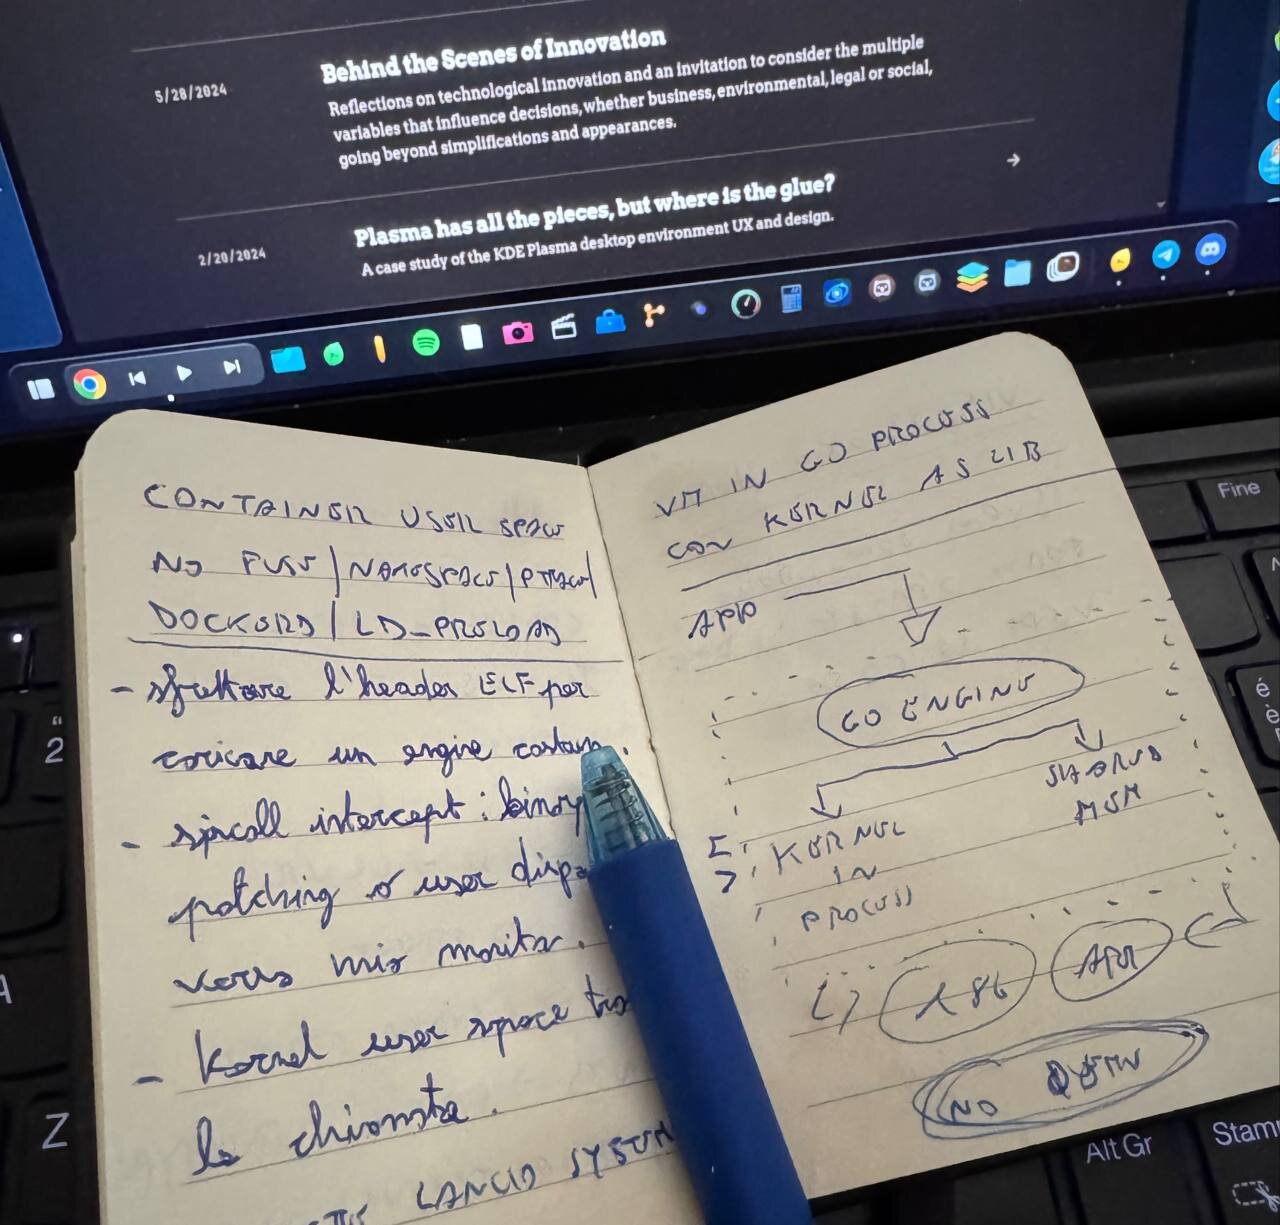 5/28/2024
Behind the Scenes of Innovation
Reflections on technological innovation and an invitation to consider the multiple
variables that influence decisions, whether business, environmental, legal or social,
going beyond simplifications and appearances.
2/20/2024
Plasma has all the pieces, but where is the glue?
A case study of the KDE Plasma desktop environment UX and design.
CONTAINER USER SPACE
NO FUSE/NAMESPACE/PTRACE/
DOCKERD/LD_PRELOAD
- sfruttare l'header ELF per
caricare un engine custom.
- syscall intercept: binary
patching o user
verso mio monitor.
- Kernel user space
le chiamate.
LANCIO SYSTEM
VM IN GO PROCESS
CON KERNEL AS LIB
APP
GO ENGINE
SHARED
MEM
KERNEL
IN
PROCESS
X86
ARM
NO QEMU
Fine
2
é
è
Z
Alt Gr
Stamp